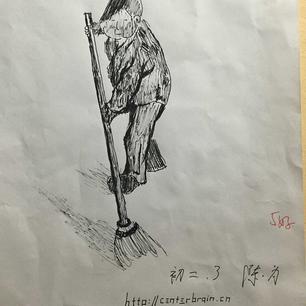 初二.3 陈为
http://centerbrain.cn